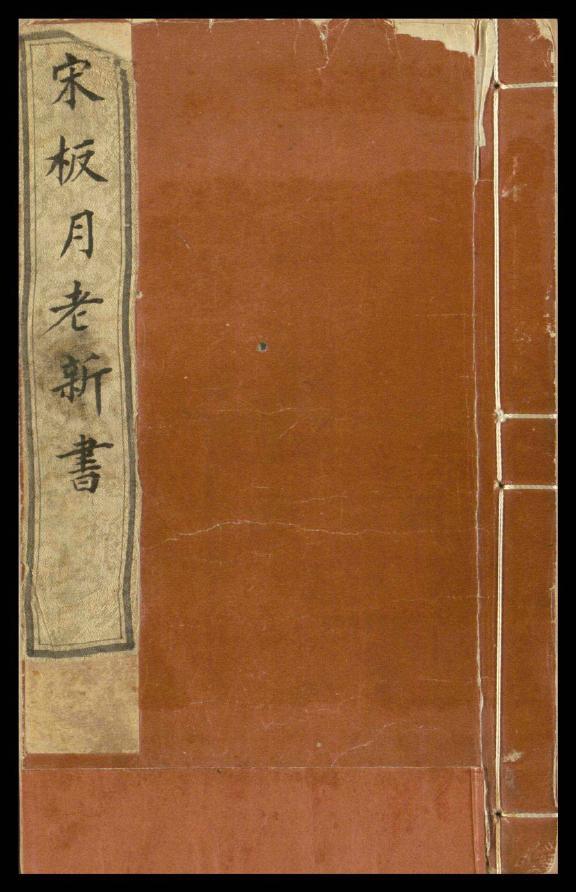 宋板月老新書